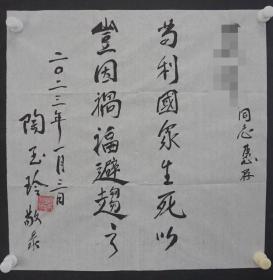 同志惠存
苟利國家生死以
豈因禍福避趨之
二〇二三年一月三日
陶玉玲敬录